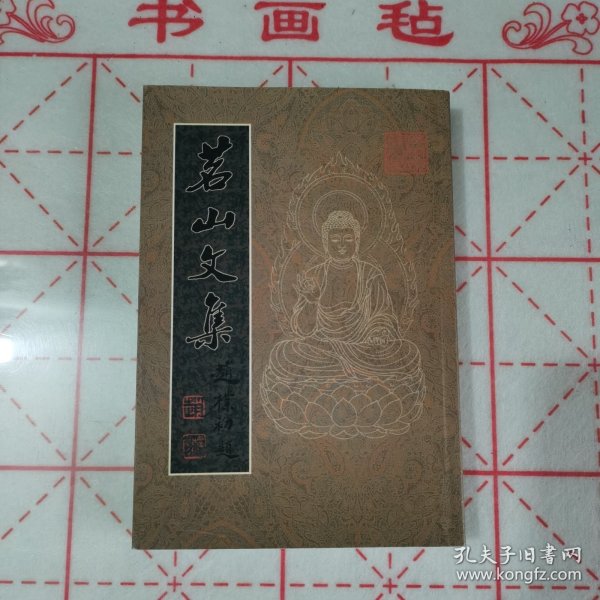 书画毡
茗山文集
赵樸初题
孔夫子旧书网
www.kongfz.com